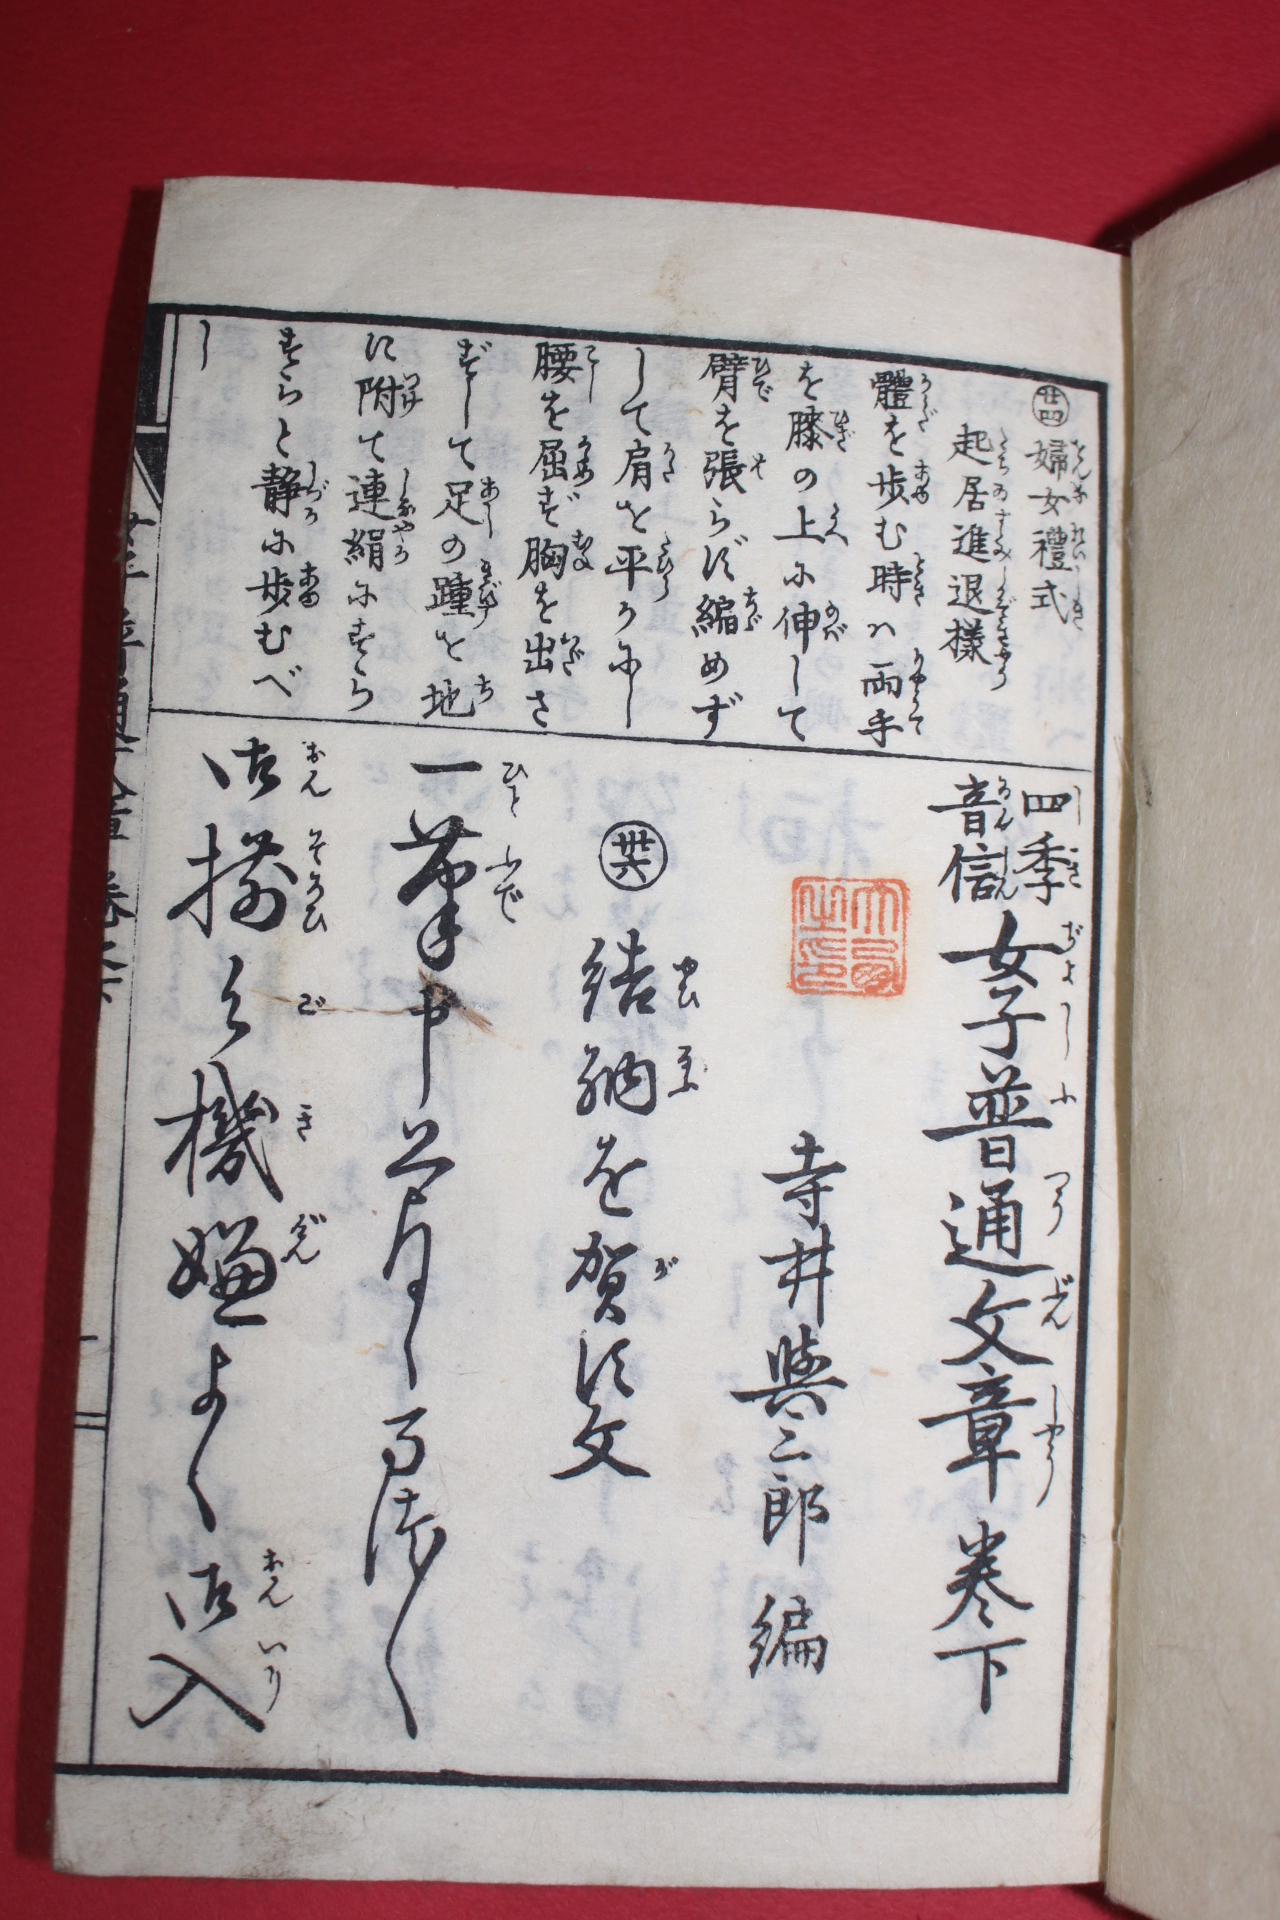 廿四 婦女禮式
起居進退樣
體を歩む時ハ両手
を膝の上に伸して
臂を張らず縮めず
して肩を平らにし
腰を屈ず胸を出さ
ずして足の踵を地
に附て連絹にすら
すらと静に歩むべ
し
四季
音信
女子普通文章 巻下
寺井與三郎 編
卅六 結納を賀す文
一筆申上
御揃ひ御機嫌よく御入